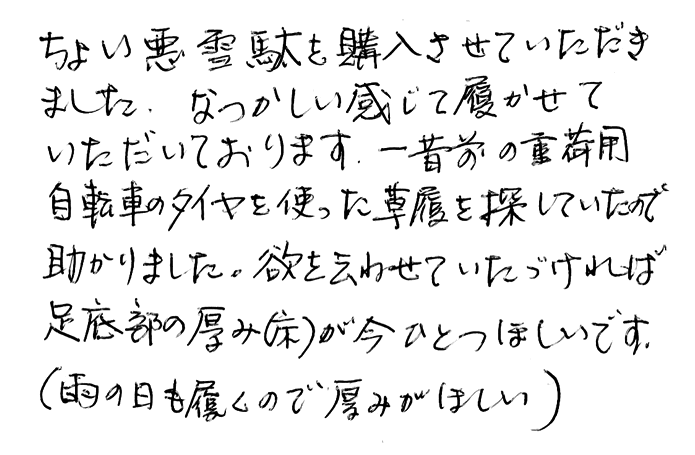 ちょい悪雪駄を購入させていただき
ました. なつかしい感じで履かせて
いただいております. 一昔前の重荷用
自転車のタイヤを使った草履を探していたので
助かりました。欲を云わせていたづければ
足底部の厚み(床)が今ひとつほしいです.
(雨の日も履くので厚みがほしい)